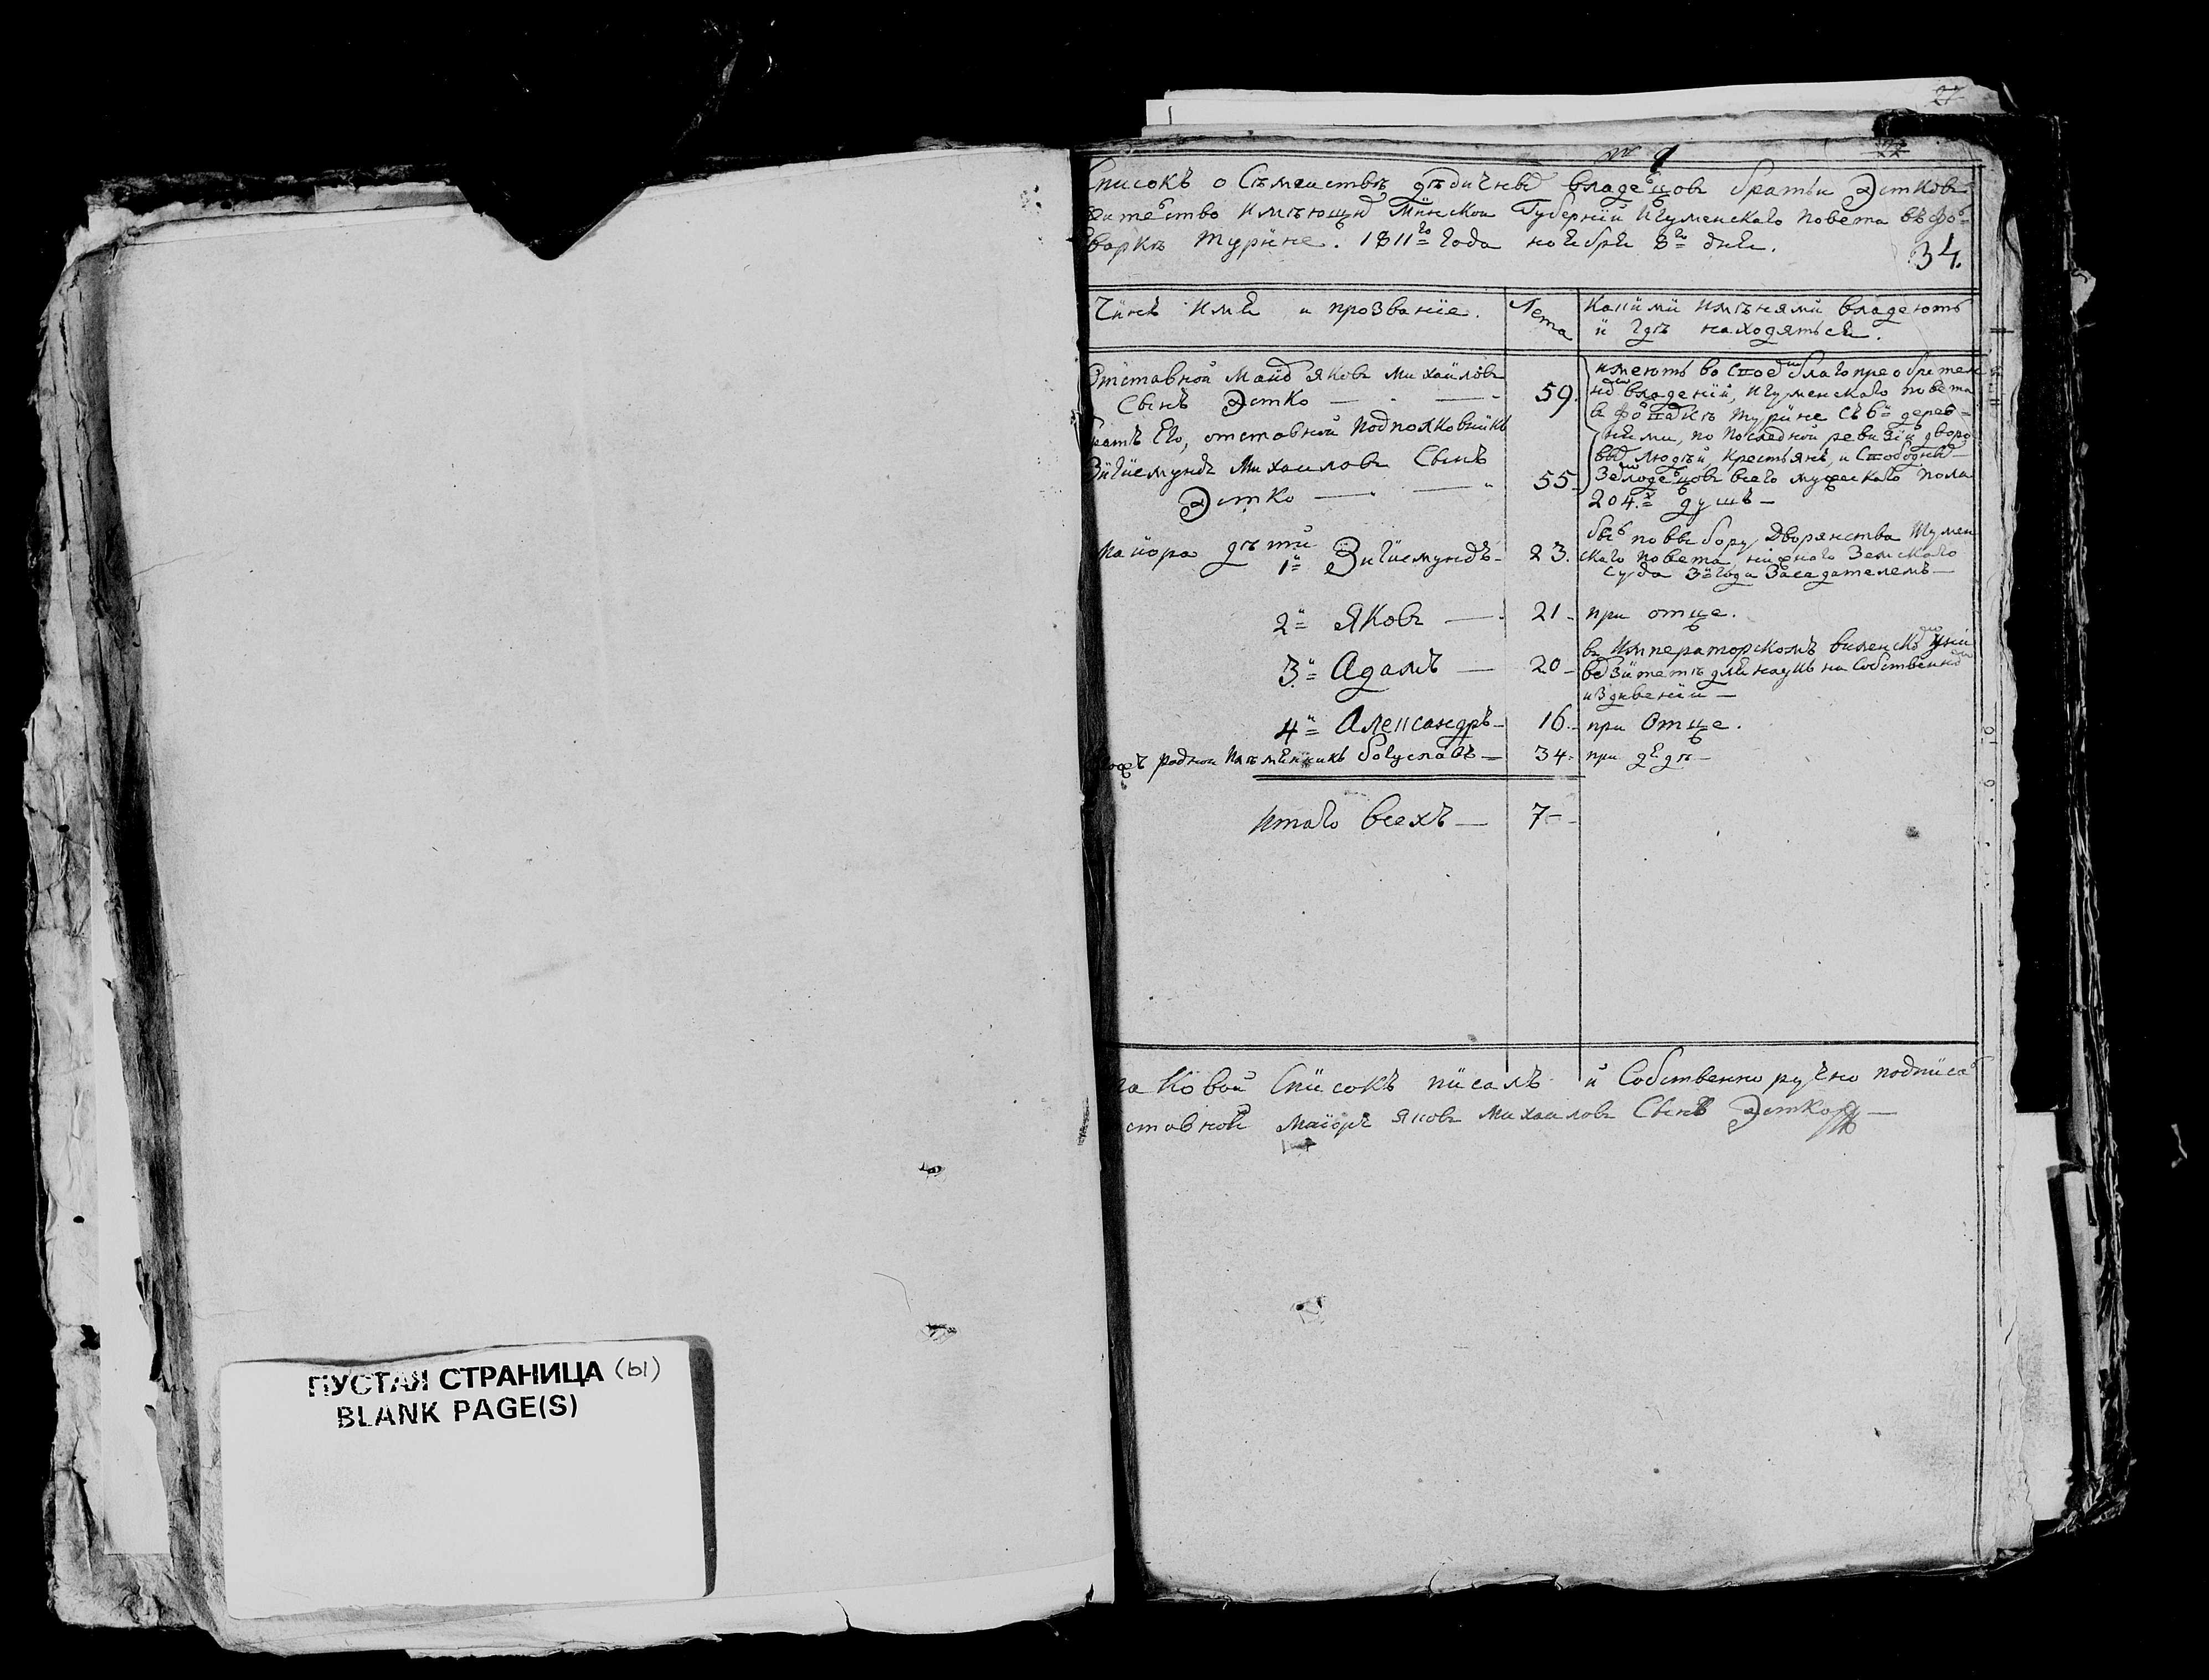 ПУСТАЯ СТРАНИЦА (ы)
BLANK PAGE(S)
27
№ 9
Списокъ о Съмействѣ дѣдичныхъ владельцовъ братьи Эстковъ
жительство имѣющихъ Минской Губерніи Игуменскаго повета въ фоль-
варкѣ Турине. 1811го Года ноября 8го дня.
34.
Чинъ имя и прозваніе.
Лета
Какими имѣнями владеютъ
и гдѣ находяться.
Отставной Маиоръ Яковъ Михаиловъ
Сынъ Эстко
59.
имеютъ во своемъ благопреобретен
номъ владеніи, Игуменскаго повета
в фольваркѣ Турине съ 6ю дерев=
нями, по последной ревизіи дворо
выхъ людѣй, Крестьянъ, и Свободныхъ
Земледельцовъ всего мужескаго пола
204.х душъ
братъ Его, отставной Подполковникъ
Зигисмундъ Михаиловъ Сынъ
Эстко
55
Маиора дѣти
1й Зигисмундъ
23.
былъ по выбору Дворянства Игумен
скаго повета нижнаго Земскаго
Суда 3 года Заседателемъ
2й Яковъ
21
при отце.
3й Адамъ
20
въ Императорскомъ виленскомъ Уни
верзитетѣ для наукъ на Собственномъ
издивеніи
4й Александръ
16.
при Отце.
родной племянникъ Богуславъ
34.
при дядѣ
Итаго всехъ
7
таковой Списокъ писалъ и Собственно ручно подписалъ
ставной маиоръ Яковъ Михаиловъ Сынъ Эстко